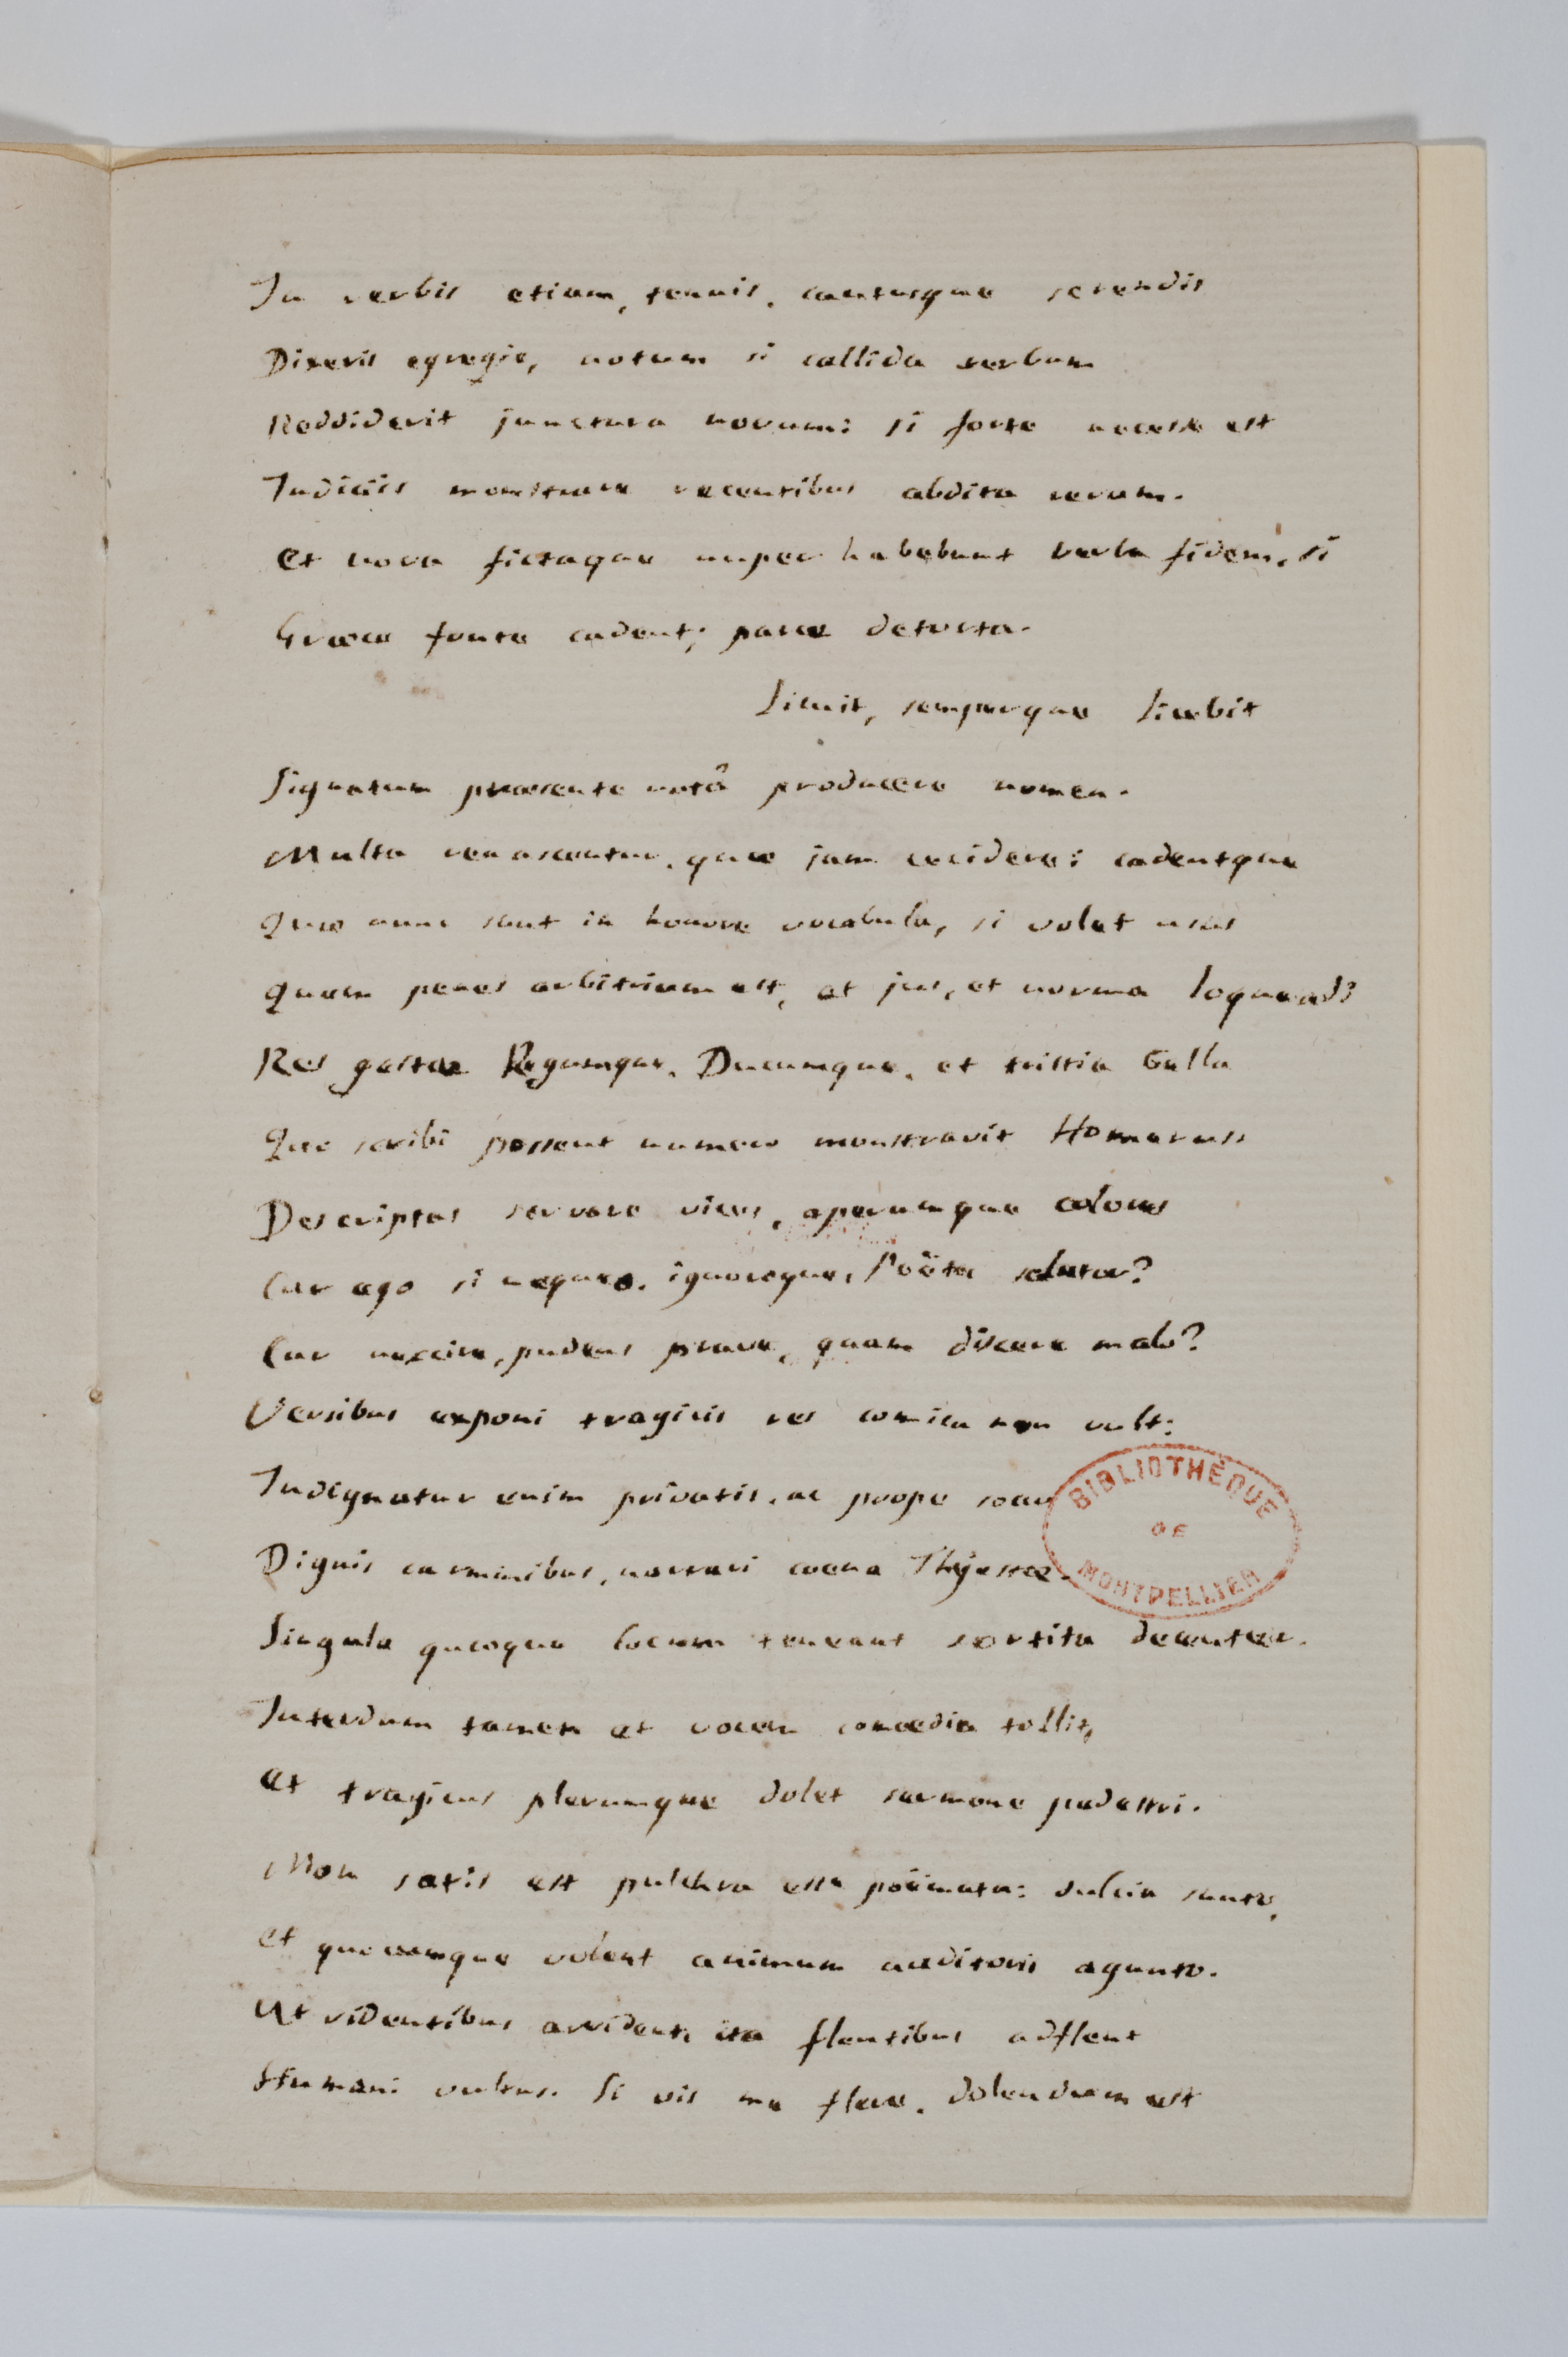 In verbis etiam, tenuis, cautusque serendis
Dixeris egregie, notum si callida verbum
Reddiderit junctura novum: si forte necesse est
Indiciis monstrare recentibus abdita rerum.
Et nova fictaque nuper habebunt verba fidem, si
Græco fonte cadent; parce detorta.
Licuit, semperque licebit
Signatum præsente notâ producere nomen.
Multa renascentur, quæ jam cecidere: cadentque
Quæ nunc sunt in honore vocabula, si volet usus
Quem penes arbitrium est, et jus, et norma loquendi
Res gestæ Regumque, Ducumque, et tristia Bella
Quo scribi possent numero monstravit Homerus.
Descriptas servare vices, operumque colores
Cur ego si nequeo, ignoroque, Poëta salutor?
Cur nescire, pudens prave, quam discere malo?
Versibus exponi tragicis res comica non vult:
Indignatur enim privatis, ac prope socc
Dignis carminibus, narrari coena Thyestæ.
Singula quæque locum teneant sortita decenter.
Interdum tamen et vocem comœdia tollit,
Et tragicus plerumque dolet sermone pedestri.
Non satis est pulchra esse poëmata: dulcia sunto,
Et quocumque volent animum auditoris agunto.
Ut ridentibus arrident, ita flentibus adflent
Humani vultus. Si vis me flere, dolendum est
BIBLIOTHÈQUE
DE
MONTPELLIER